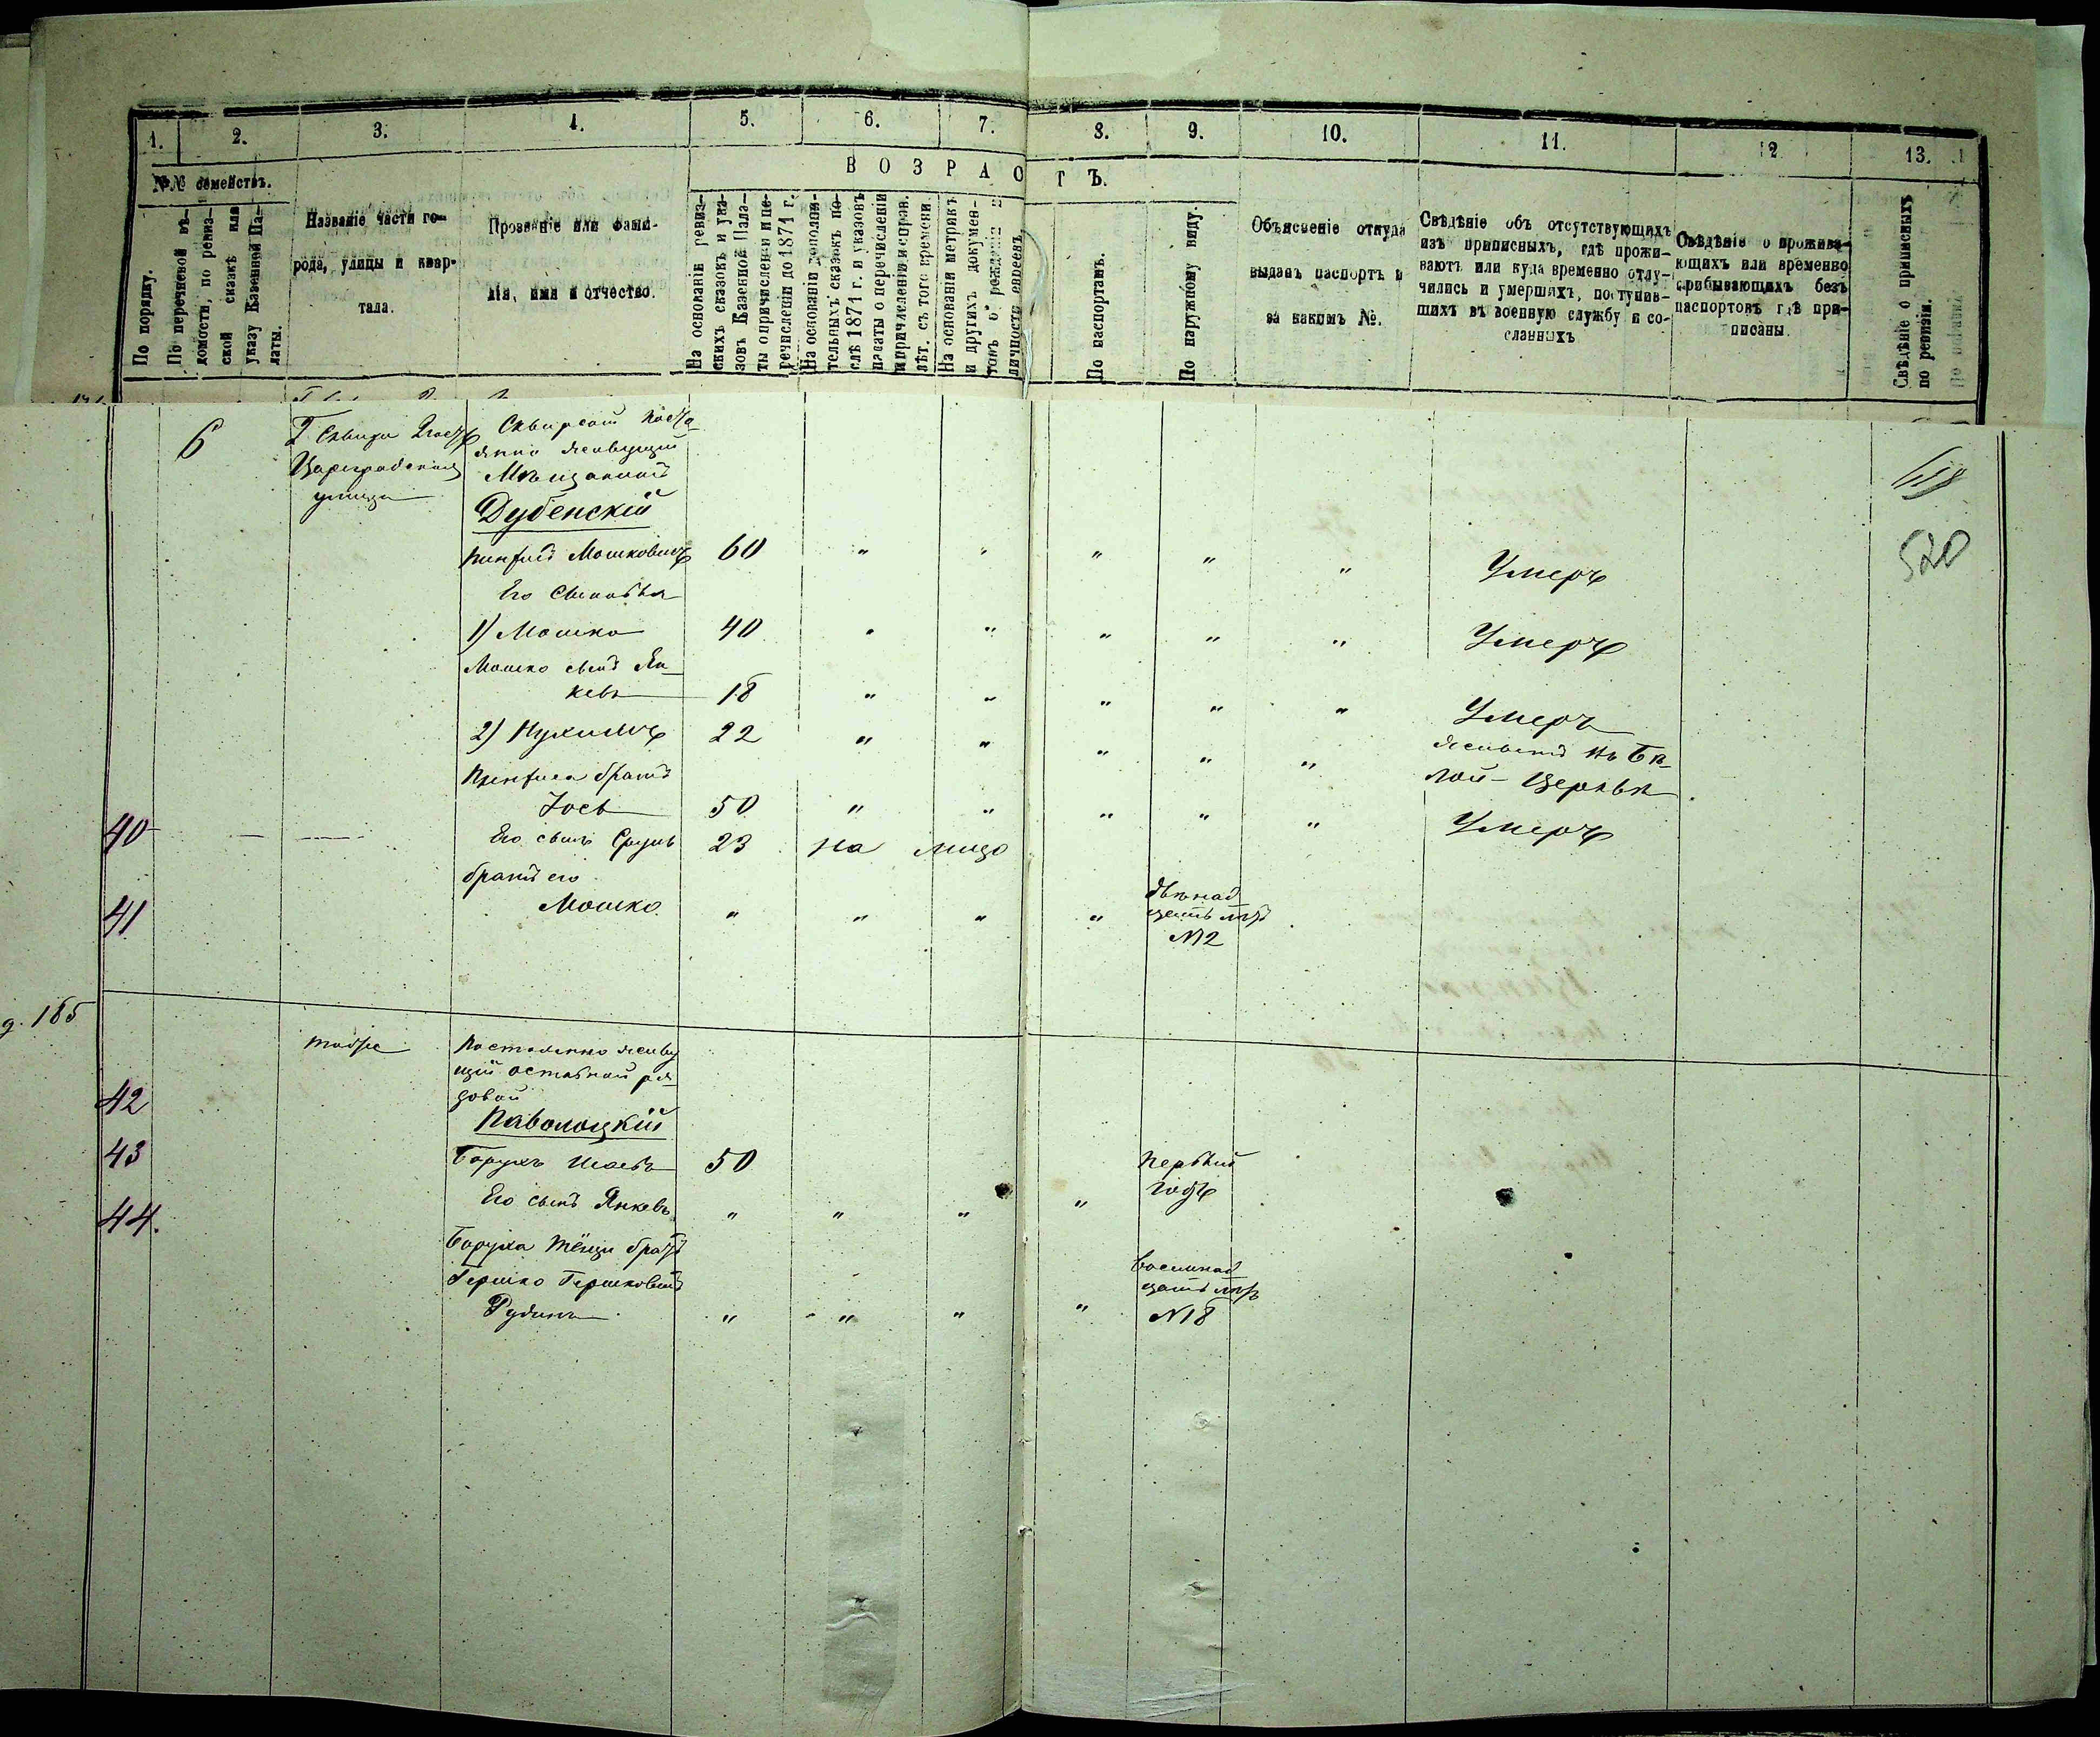 1. 2. 3. 4. 5. 6. 7. 8. 9. 10. 11. 12 13.
№№ семействъ.
В О З Р А С Т Ъ.
По порядку.
По перечневой вѣ-
домости, по ревиз-
ской сказкѣ или
указу Казенной Па-
латы.
Названіе части го-
рода, улицы и квар-
тала.
Прозваніе или фами-
лія, имя и отчество.
На основаніи ревиз-
скихъ сказокъ и ука-
зовъ Казенной Пала-
ты о причисленіи и пе-
речисленіи до 1871 г.
На основаніи дополни-
тельныхъ сказокъ по-
слѣ 1871 г. и указовъ
палаты о перечисленіи
и причисленіи и справ.
лѣт. съ того времени.
На основаніи метрикъ
и другихъ докумен-
товъ о рожденіи и
личности евреевъ.
По паспортамъ.
По наружному виду.
Объясненіе откуда
выданъ паспортъ и
за какимъ №.
Свѣдѣніе объ отсутствующихъ
изъ приписныхъ, гдѣ прожи-
ваютъ или куда временно отлу-
чились и умершихъ, поступив-
шихъ въ военную службу и со-
сланныхъ
Свѣдѣніе о прожива-
ющихъ или временно
прибывающихъ безъ
паспортовъ гдѣ при-
писаны.
Свѣдѣніе о приписныхъ
по ревизіи.
6
Г Сквира
Цареградская
улица
Сквирскій посто
янно живущій
Мѣщанинъ
Дубенскій
520
Пинхасъ Мошковичъ 60 " " " " " Умеръ
Его Сыновья
1) Мошко 40 " " " " " Умеръ
Мошко сынъ Ян-
кевъ 18 " " " " " Умеръ
2) Нухимъ 22 " " " " " живетъ въ Бѣ-
лой-Церквѣ
Пинхаса братъ
Іось 50 " " " " " Умеръ
40 Его сынъ Срулъ 23 на лицо
братъ его
41 Мошко " " " " двѣнад
цать лѣтъ
№12
д. 185
тоже
Постоянно живу
щій оставной ря
довой
42 Паволоцкій
43 Борухъ 50 первый
годъ
44. Его сынъ Янкевъ " " " "
Боруха тёщи братъ
Гершко Гершковичъ
Рудикъ " " " " восемнад
цать лѣтъ
№18